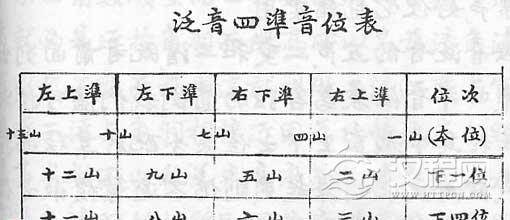 泛音四準音位表
左上準 左下準 右下準 右上準 位次
十五山 十山 七山 四山 一山 (本位)
十二山 九山 五山 二山 下一位
十一山 八山 六山 三山 下四位
汉程网
HTTPCN.COM